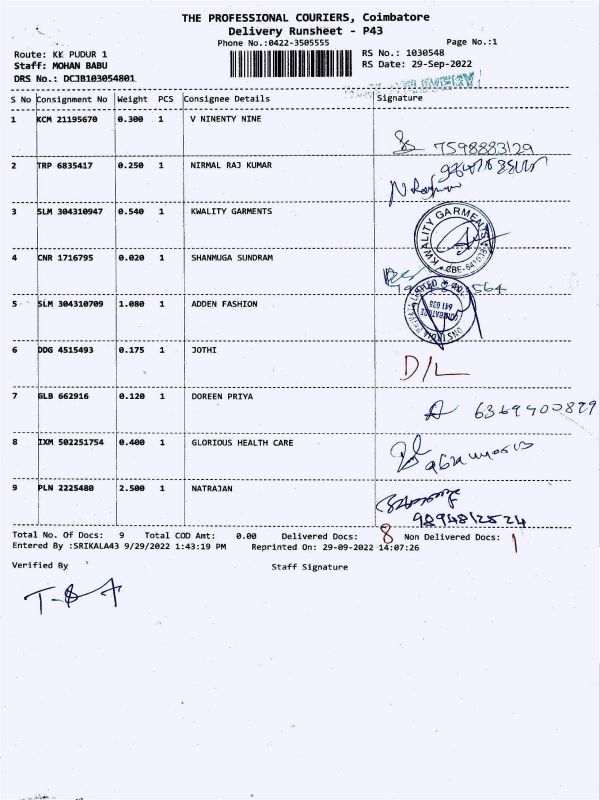 THE PROFESSIONAL COURIERS, Coimbatore
Delivery Runsheet - P43
Phone No.:0422-3505555
Page No.:1
Route: KK PUDUR 1
RS No.: 1030548
Staff: MOHAN BABU
RS Date: 29-Sep-2022
DRS No.: DCJB103054801
DELIVERY
S No Consignment No Weight PCS Consignee Details Signature
1 KCM 21195670 0.300 1 V NINENTY NINE
7598883129
2 TRP 6835417 0.250 1 NIRMAL RAJ KUMAR
3 SLM 304310947 0.540 1 KWALITY GARMENTS
KWALITY GARMENTS
4 CNR 1716795 0.020 1 SHANMUGA SUNDRAM
5 SLM 304310709 1.080 1 ADDEN FASHION
COIMBATORE
6 DDG 4515493 0.175 1 JOTHI
D/L
7 GLB 662916 0.120 1 DOREEN PRIYA
6369400829
8 IXM 502251754 0.400 1 GLORIOUS HEALTH CARE
9 PLN 2225480 2.500 1 NATRAJAN
9894812524
Total No. Of Docs: 9 Total COD Amt: 0.00 Delivered Docs: 8 Non Delivered Docs: 1
Entered By :SRIKALA43 9/29/2022 1:43:19 PM Reprinted On: 29-09-2022 14:07:26
Verified By Staff Signature